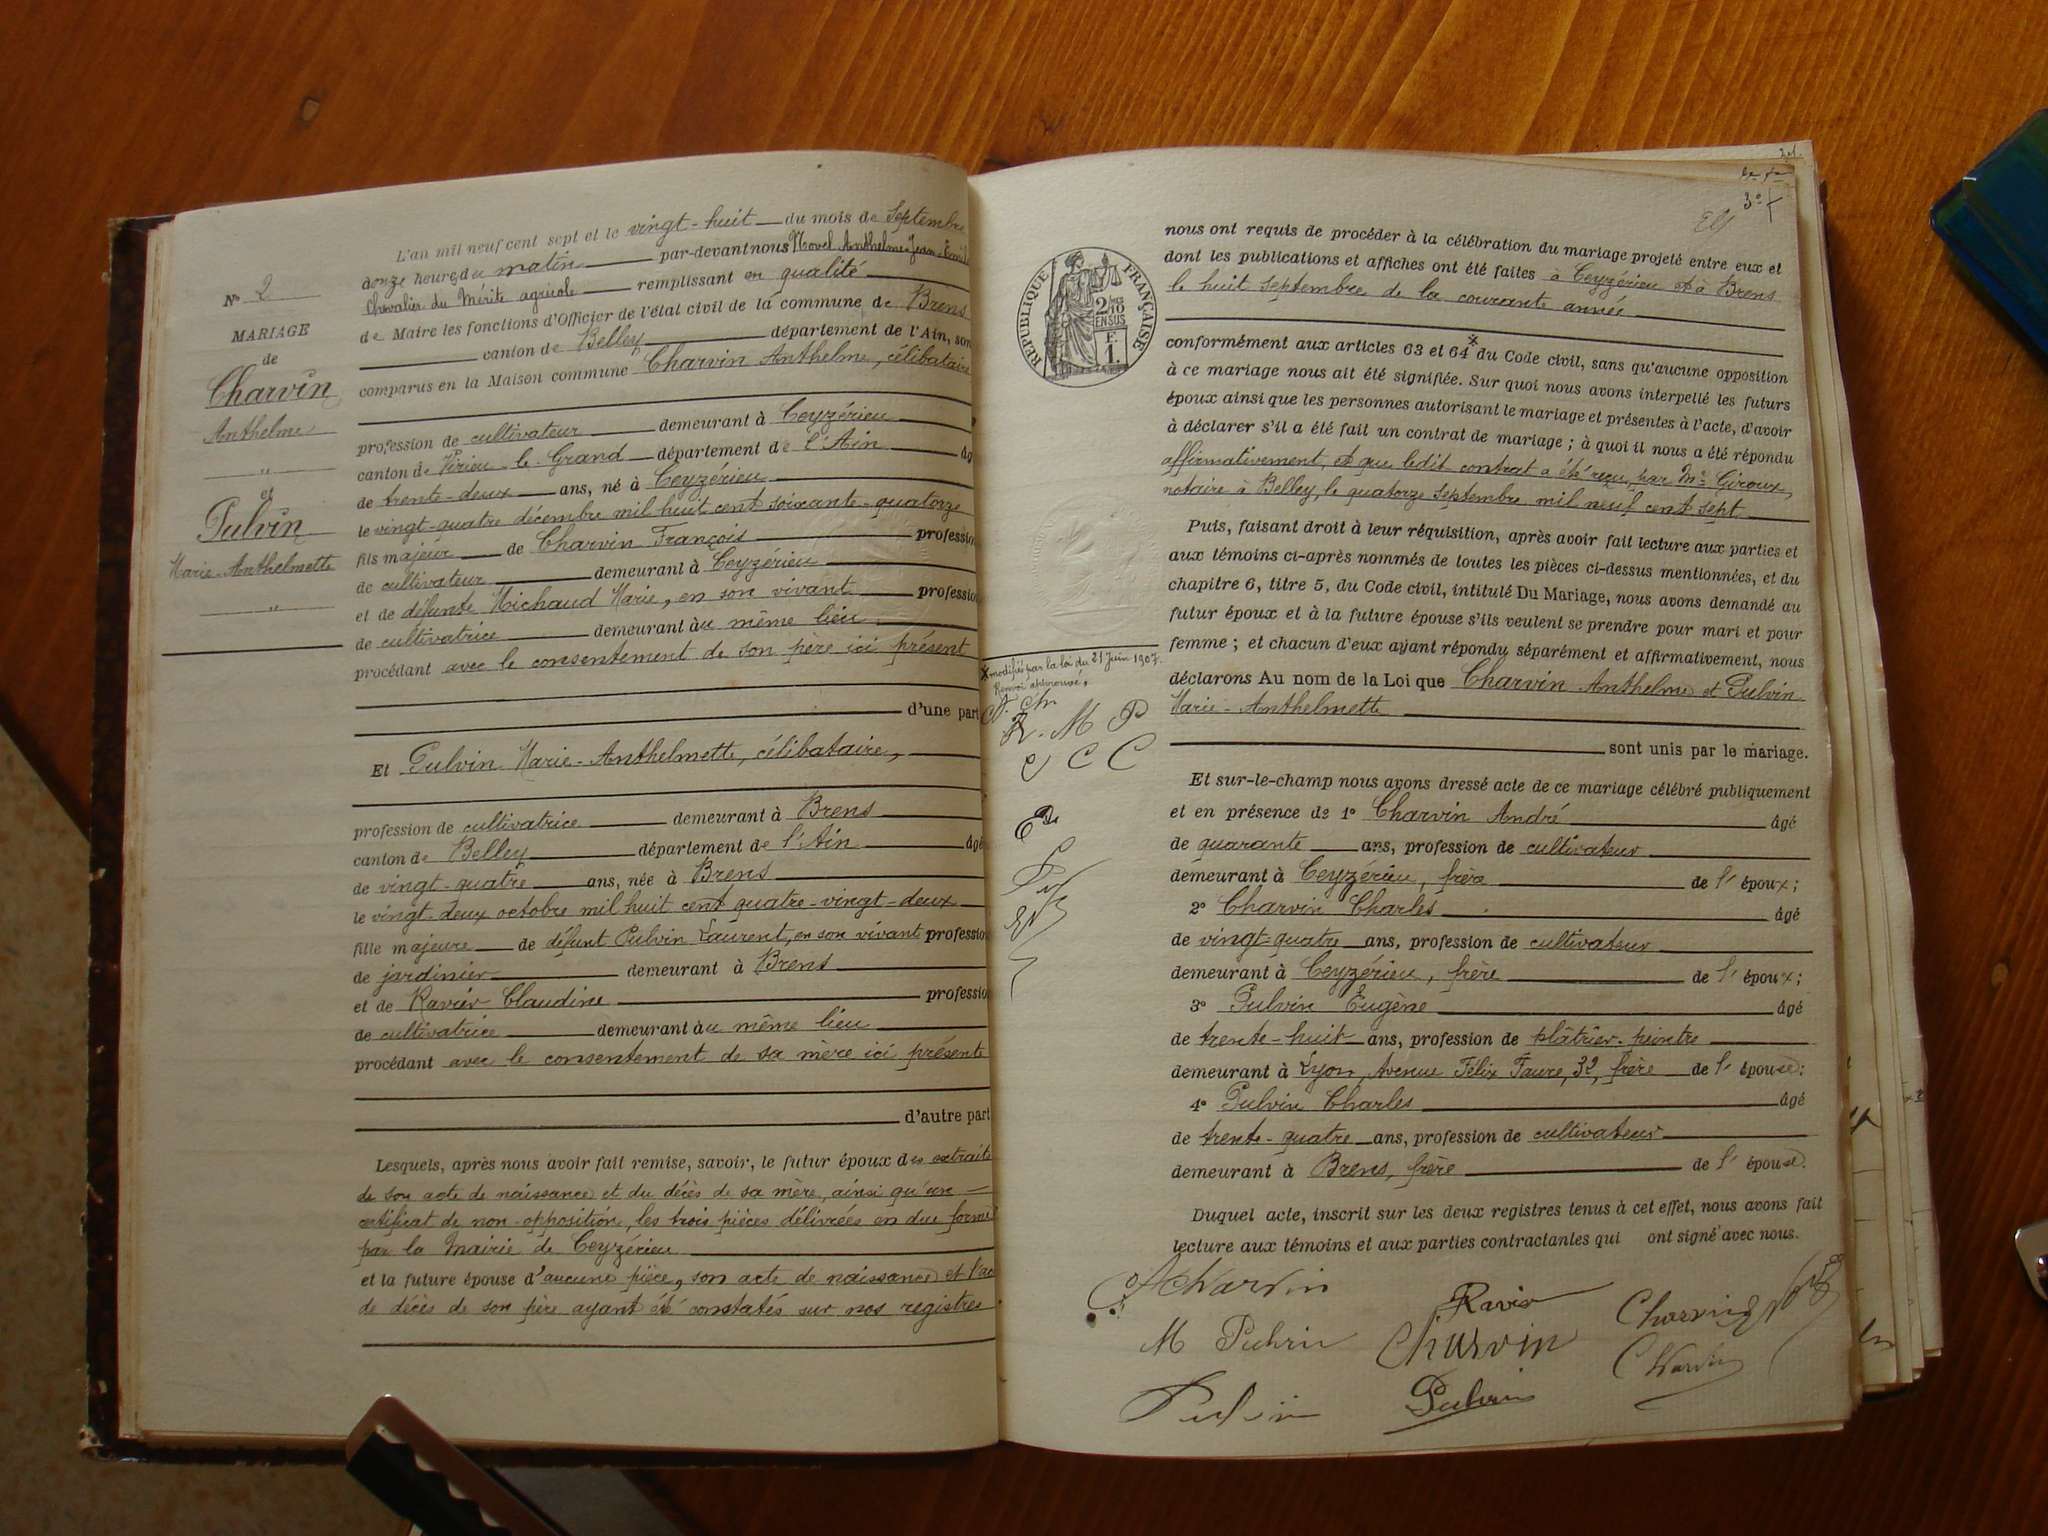 L'an mil neuf cent sept et le vingt-huit du mois de Septembre
onze heures du matin par-devant nous Novel Anthelme-Jean-Emile
Chevalier du Mérite agricole remplissant en qualité
de Maire les fonctions d'Officier de l'état civil de la commune de Brens
canton de Belley département de l'Ain, son
comparus en la Maison commune Charvin Anthelme, célibataire
N° 2
MARIAGE
de
Charvin
Anthelme
"
et
Pulvin
Marie-Anthelmette
"
profession de cultivateur demeurant à Ceyzérieu
canton de Virieu-le-Grand département de l'Ain âg
de trente-deux ans, né à Ceyzérieu
le vingt-quatre décembre mil huit cent soixante-quatorze
fils majeur de Charvin François profession
de cultivateur demeurant à Ceyzérieu
et de défunte Michaud Marie, en son vivant profession
de cultivatrice demeurant àu même lieu
procédant avec le consentement de son père ici présent
d'une part
Et Pulvin Marie-Anthelmette, célibataire,
profession de cultivatrice demeurant à Brens
canton de Belley département de l'Ain âgé
de vingt-quatre ans, née à Brens
le vingt-deux octobre mil huit cent quatre-vingt-deux
fille majeure de défunt Pulvin Laurent, en son vivant profession
de jardinier demeurant à Brens
et de Ravier Claudine profession
de cultivatrice demeurant àu même lieu
procédant avec le consentement de sa mère ici présente
d'autre part
Lesquels, après nous avoir fait remise, savoir, le futur époux des extraits
de son acte de naissance et du décès de sa mère, ainsi qu'un
certificat de non-opposition, les trois pièces délivrées en due forme
par la Mairie de Ceyzérieu
et la future épouse d'aucune pièce, son acte de naissance et l'ac
de décès de son père ayant été constatés sur nos registres
3°
RÉPUBLIQUE FRANÇAISE
2/10
EN SUS
F.
1.
nous ont requis de procéder à la célébration du mariage projeté entre eux et
dont les publications et affiches ont été faites à Ceyzérieu et à Brens
le huit septembre de la courante année
conformément aux articles 63 et 64 x du Code civil, sans qu'aucune opposition
à ce mariage nous ait été signifiée. Sur quoi nous avons interpellé les futurs
époux ainsi que les personnes autorisant le mariage et présentes à l'acte, d'avoir
à déclarer s'il a été fait un contrat de mariage ; à quoi il nous a été répondu
affirmativement, et que ledit contrat a été reçu par Me Giroux,
notaire à Belley, le quatorze septembre mil neuf cent sept
Puis, faisant droit à leur réquisition, après avoir fait lecture aux parties et
aux témoins ci-après nommés de toutes les pièces ci-dessus mentionnées, et du
chapitre 6, titre 5, du Code civil, intitulé Du Mariage, nous avons demandé au
futur époux et à la future épouse s'ils veulent se prendre pour mari et pour
femme ; et chacun d'eux ayant répondu séparément et affirmativement, nous
déclarons Au nom de la Loi que Charvin Anthelme et Pulvin
Marie-Anthelmette
sont unis par le mariage.
x modifié par la loi du 21 juin 1907.
Renvoi approuvé,
A. Ch
R. M P
C C
Et sur-le-champ nous avons dressé acte de ce mariage célébré publiquement
et en présence de 1° Charvin André âgé
de quarante ans, profession de cultivateur
demeurant à Ceyzérieu, frère de l' époux ;
2° Charvin Charles âgé
de vingt-quatre ans, profession de cultivateur
demeurant à Ceyzérieu, frère de l' époux ;
3° Pulvin Eugène âgé
de trente-huit ans, profession de plâtrier-peintre
demeurant à Lyon, Avenue Félix Faure, 32, frère de l' épouse ;
4° Pulvin Charles âgé
de trente-quatre ans, profession de cultivateur
demeurant à Brens, frère de l' épouse.
Duquel acte, inscrit sur les deux registres tenus à cet effet, nous avons fait
lecture aux témoins et aux parties contractantes qui ont signé avec nous.
A Charvin
Ravier
Charvin
M Pulvin
Charvin
Charvin
Pulvin
Pulvin